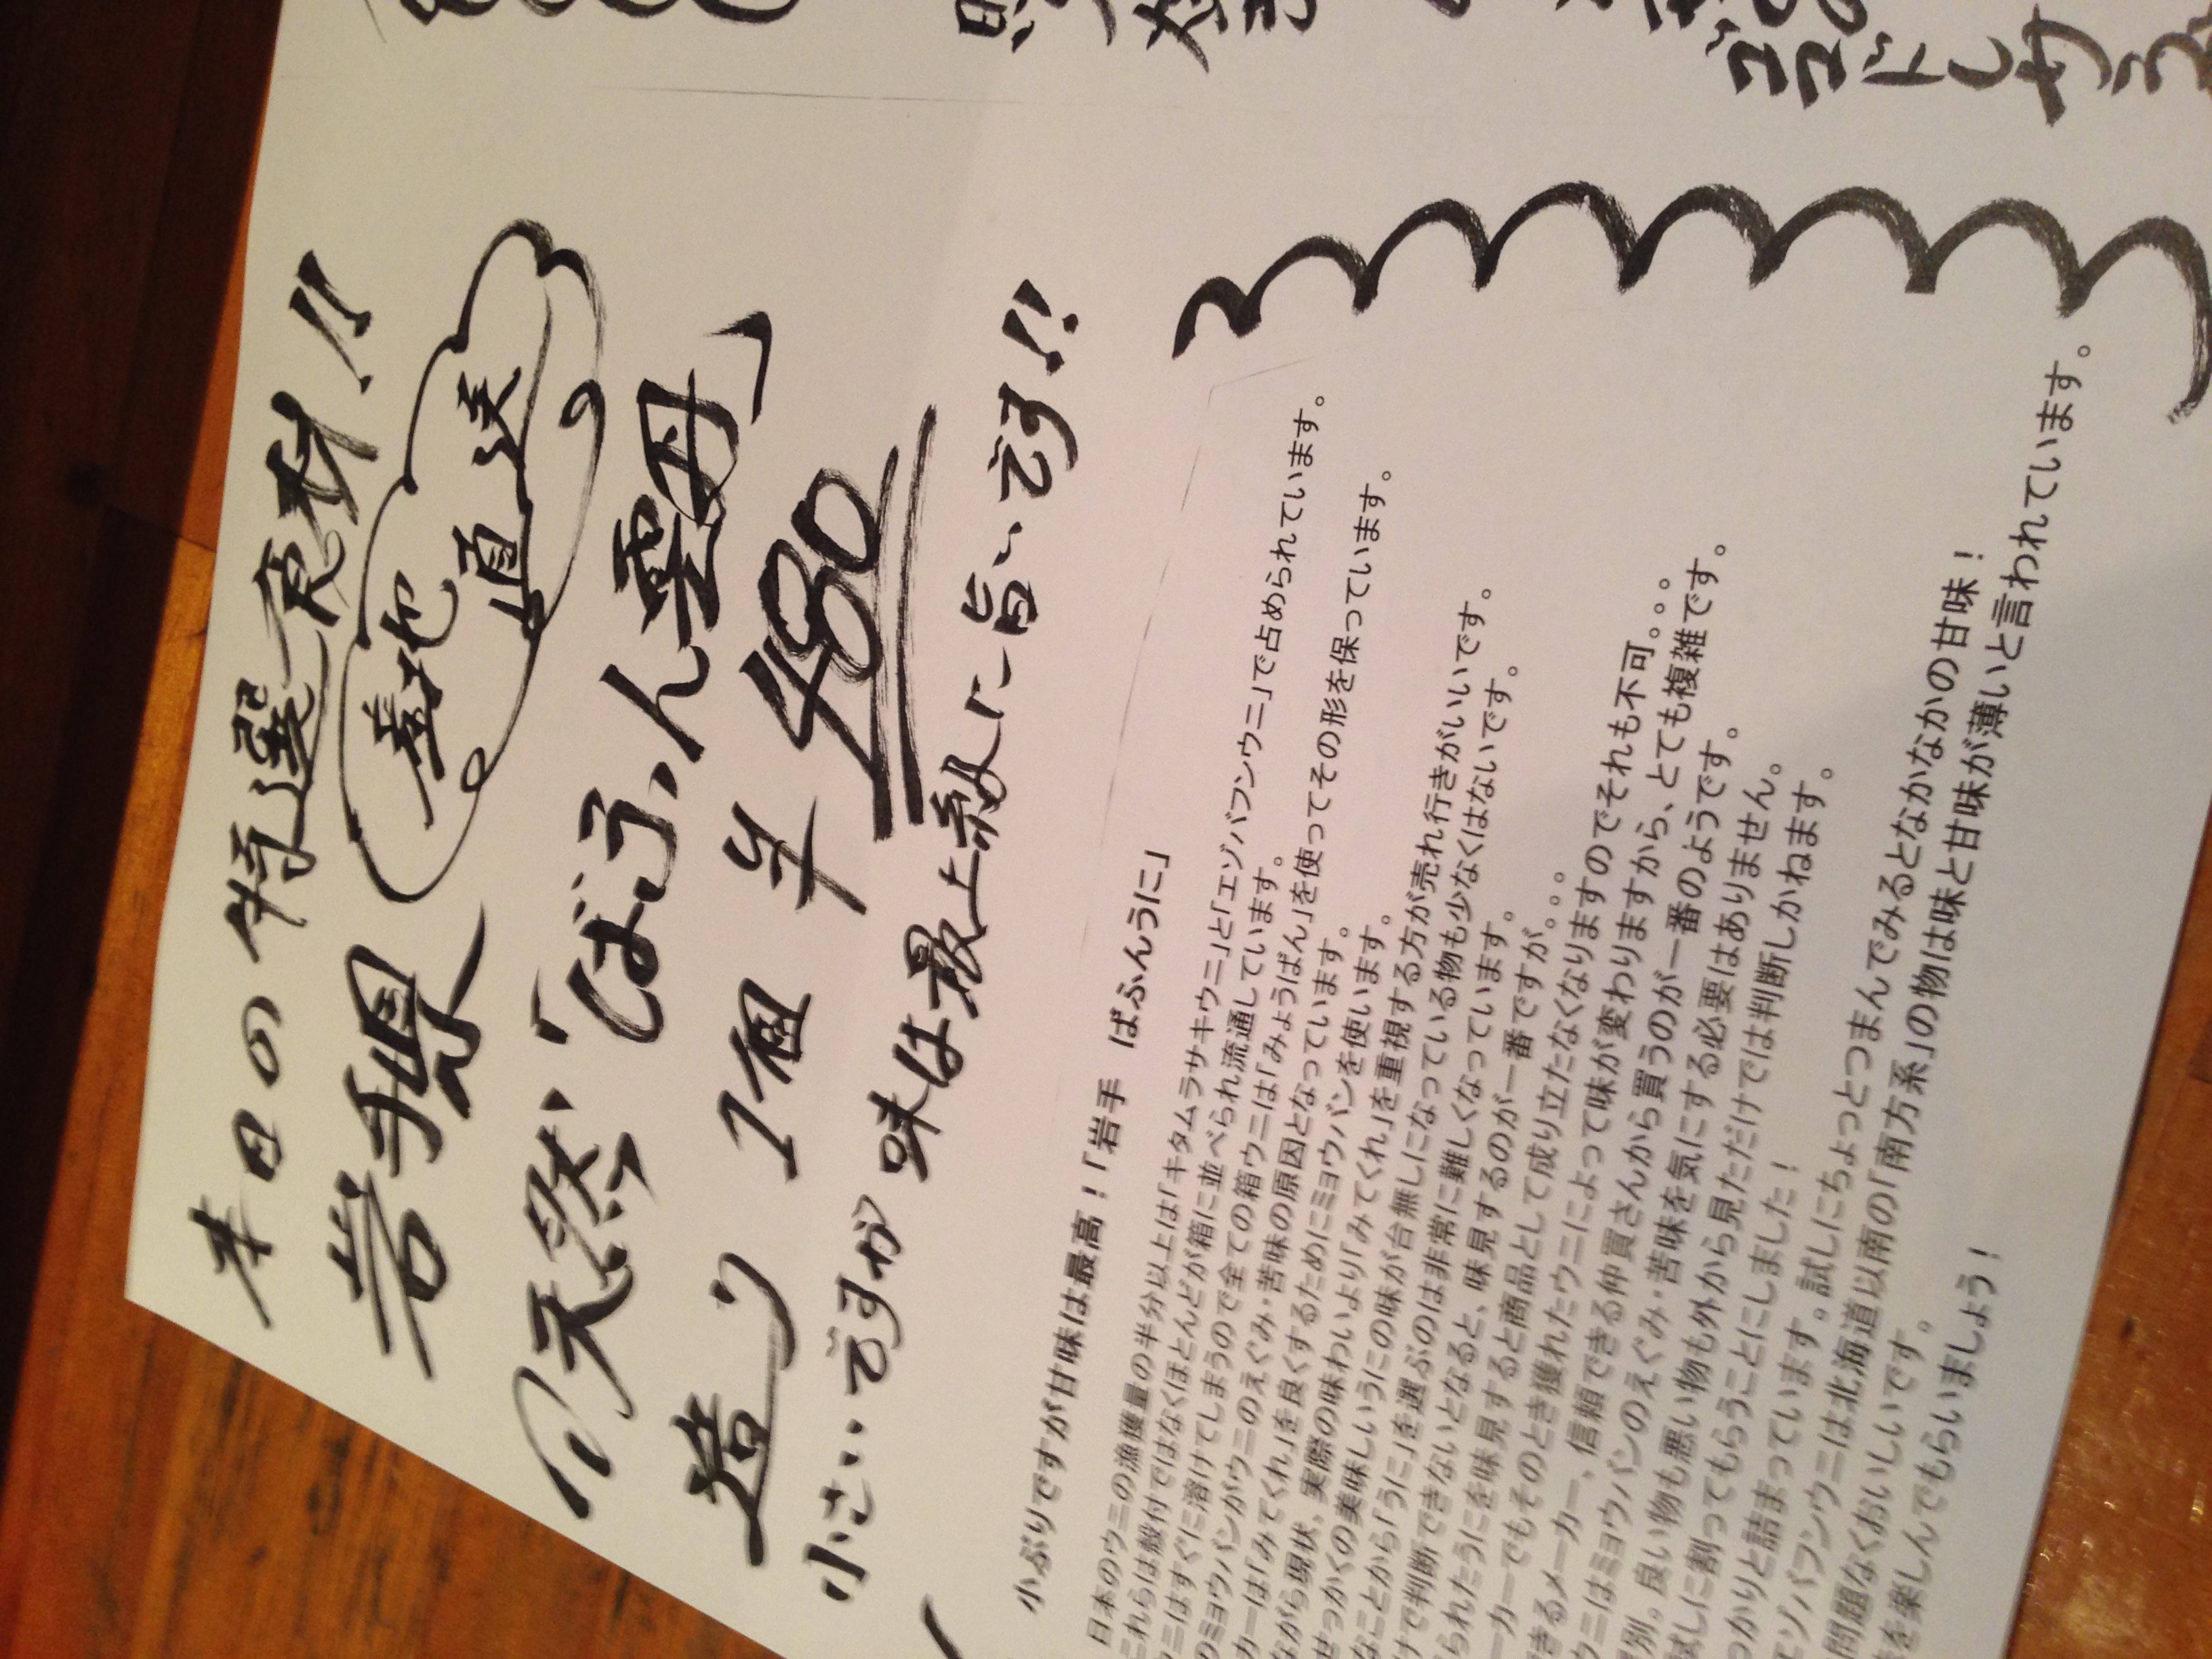 本日の特選食材!!
岩手県
産地
直送
の天然「ばふん雲丹」
造り 1個 半 480
小さいですが 味は最上級に旨いです!!
小ぶりですが甘味は最高!「岩手 ばふんうに」
日本のウニの漁獲量の半分以上は「キタムラサキウニ」と「エゾバフンウニ」で占められています。
これらは殻付ではなくほとんどが箱に並べられ流通しています。
ニはすぐに溶けてしまうので全ての箱ウニは「みょうばん」を使ってその形を保っています。
のミョウバンがウニのえぐみ・苦味の原因となっています。
カーは「みてくれ」を良くするためにミョウバンを使います。
ながら現状、実際の味わいより「みてくれ」を重視する方が売れ行きがいいです。
せっかくの美味しいうにの味が台無しになっている物も少なくはないです。
なことから「うに」を選ぶのは非常に難しくなっています。
けで判断できないとなると、味見するのが一番ですが。。。
られたうにを味見すると商品として成り立たなくなりますのでそれも不可。。。
ーカーでもそのとき獲れたウニによって味が変わりますから、とても複雑です。
きるメーカー、信頼できる仲買さんから買うのが一番のようです。
ウニはミョウバンのえぐみ・苦味を気にする必要はありません。
別。良い物も悪い物も外から見ただけでは判断しかねます。
試しに割ってもらうことにしました!
つかりと詰まっています。試しにちょっとつまんでみるとなかなかの甘味!
エゾバフンウニは北海道以南の「南方系」の物は味と甘味が薄いと言われています。
問題なくおいしいです。
を楽しんでもらいましょう!